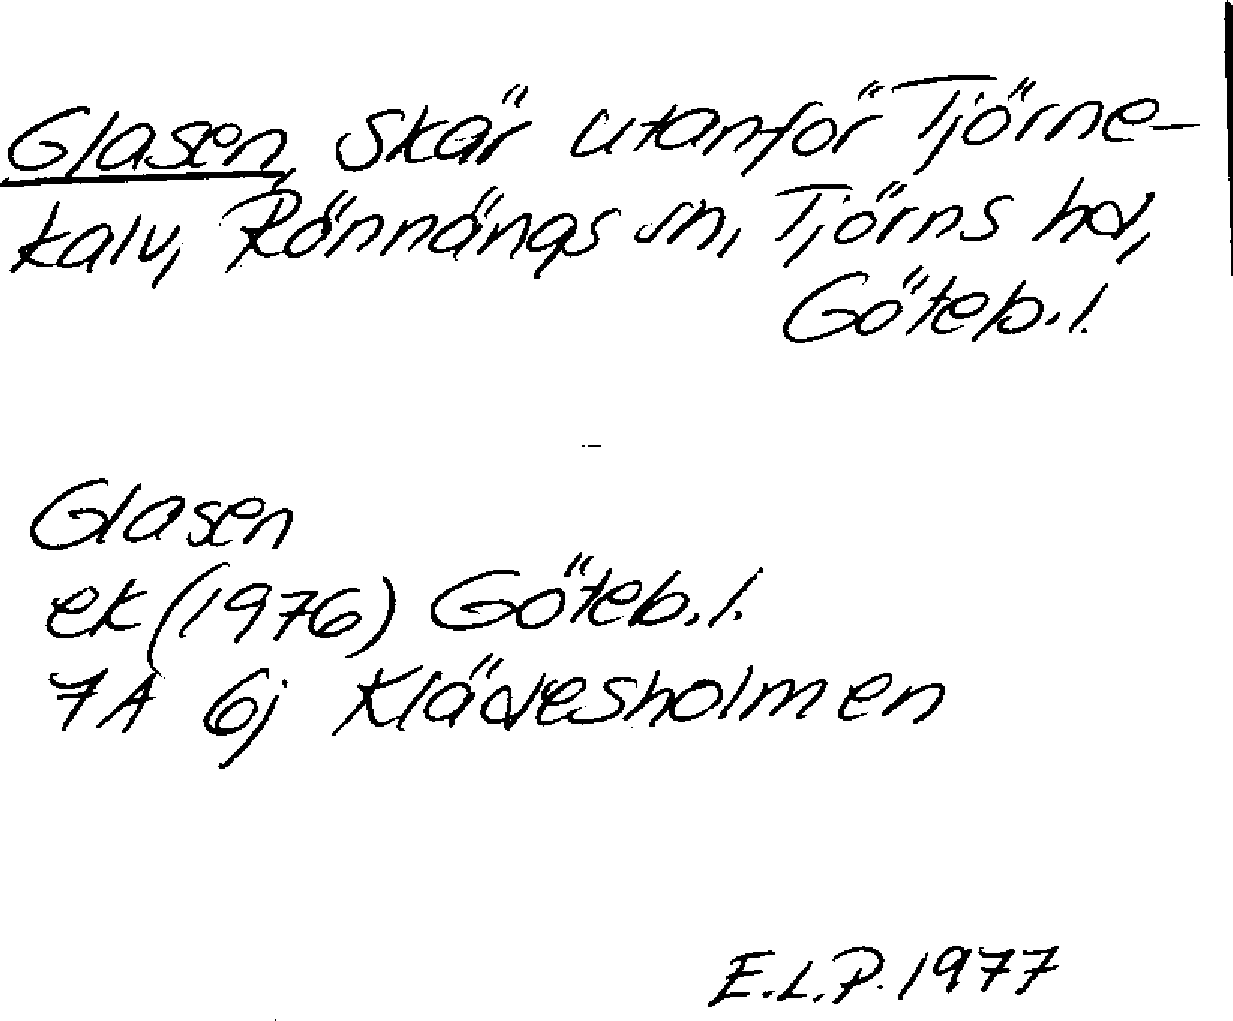 Glasen, skär utanför Tjörne-
kalv, Rönnängs sn, Tjörns hd,
Göteb. l.
Glasen
ek (1976) Göteb. l.
7A 6j Klädesholmen
E.L.P. 1977